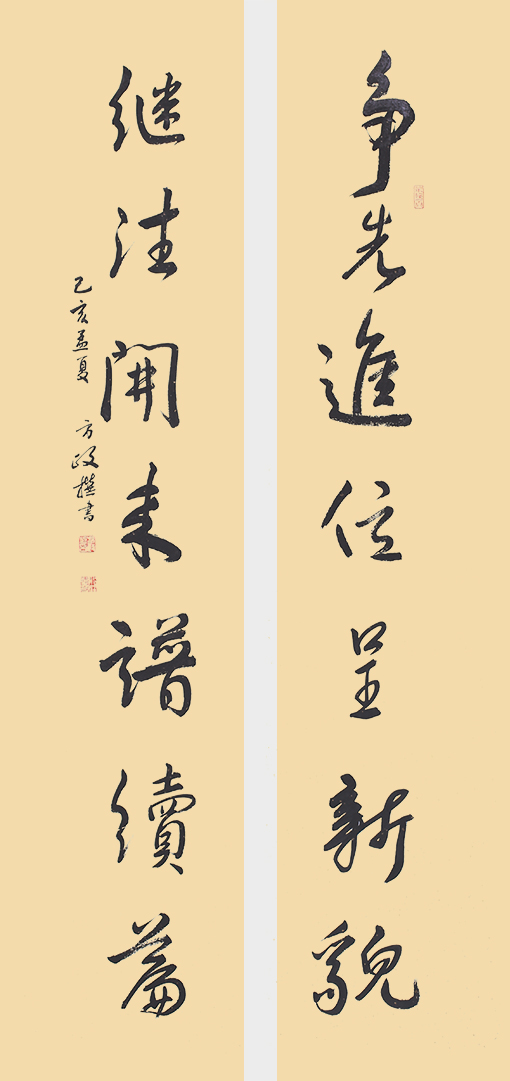 争先進位呈新貌
继往開来譜續篇
己亥孟夏 方政撰書